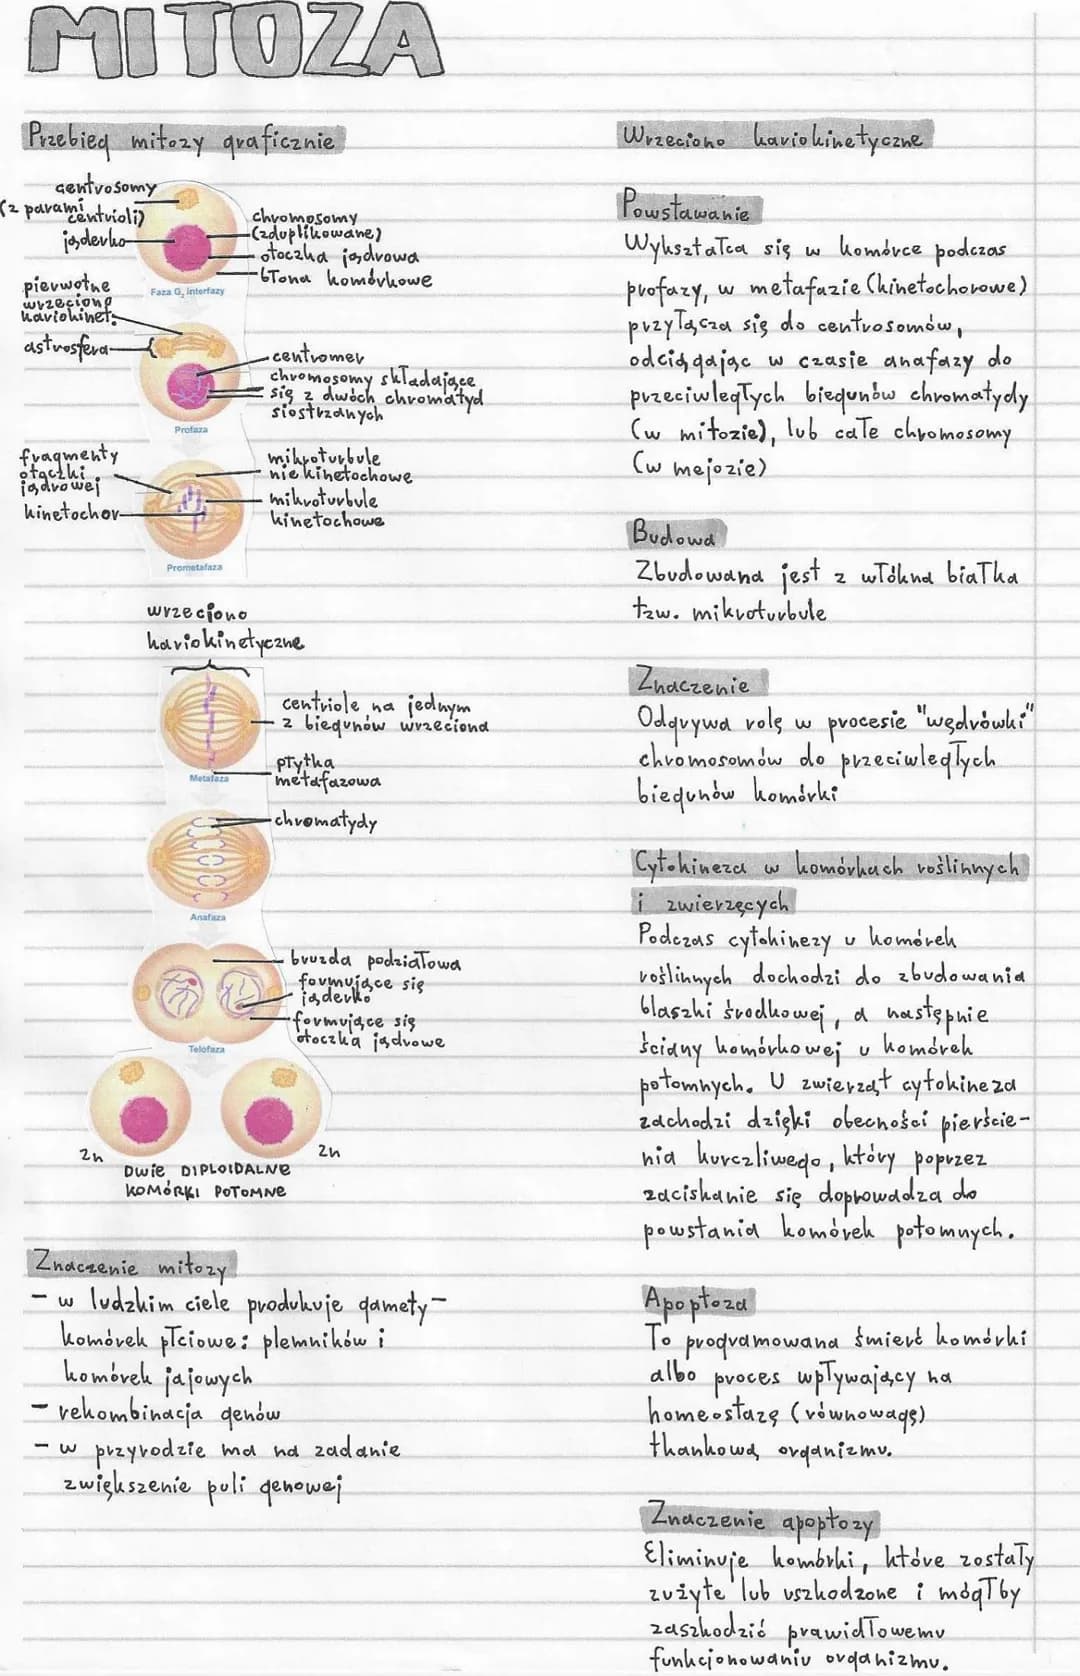 MITOZA
Przebieg mitozy graficznie
centrosomy
(z parami
centrioli)
jąderko
chromosomy
(zduplikowane)
otoczka jądrowa
błona komórkowe
Faza G₂ interfazy
pierwotne
wrzeciono
kariokinet.
astrosfera
centromer
chromosomy składające
się z dwóch chromatyd
siostrzanych
Profaza
fragmenty
otoczki
jądrowej
kinetochor
mikroturbule
niekinetochowe
mikroturbule
kinetochowe
Prometafaza
wrzeciono
kariokinetyczne
centriole na jednym
z biegunów wrzeciona
płytka
metafazowa
Metafaza
chromatydy
Anafaza
bruzda podziałowa
formujące się
jąderko
formujące się
otoczka jądrowe
Telofaza
2n
2n
DWIE DIPLOIDALNE
KOMÓRKI POTOMNE
Znaczenie mitozy
- w ludzkim ciele produkuje gamety-
komórek płciowe: plemników i
komórek jajowych
- rekombinacja genów
- w przyrodzie ma na zadanie
zwiększenie puli genowej
Wrzeciono kariokinetyczne
Powstawanie
Wykształca się w komórce podczas
profazy, w metafazie (kinetochorowe)
przyłącza się do centrosomów,
odciągając w czasie anafazy do
przeciwległych biegunów chromatydy
(w mitozie), lub całe chromosomy
(w mejozie)
Budowa
Zbudowana jest z włókna białka
tzw. mikroturbule
Znaczenie
Odgrywa rolę w procesie "wędrówki"
chromosomów do przeciwległych
biegunów komórki
Cytokineza w komórkach roślinnych
i zwierzęcych
Podczas cytokinezy u komórek
roślinnych dochodzi do zbudowania
blaszki środkowej, a następnie
ściany komórkowej u komórek
potomnych. U zwierząt cytokineza
zachodzi dzięki obecności pierście-
nia kurczliwego, który poprzez
zaciskanie się doprowadza do
powstania komórek potomnych.
Apoptoza
To programowana śmierć komórki
albo proces wpływający na
homeostazę (równowagę)
tkankową organizmu.
Znaczenie apoptozy
Eliminuje komórki, które zostały
zużyte lub uszkodzone i mógłby
zaszkodzić prawidłowemu
funkcjonowaniu organizmu.